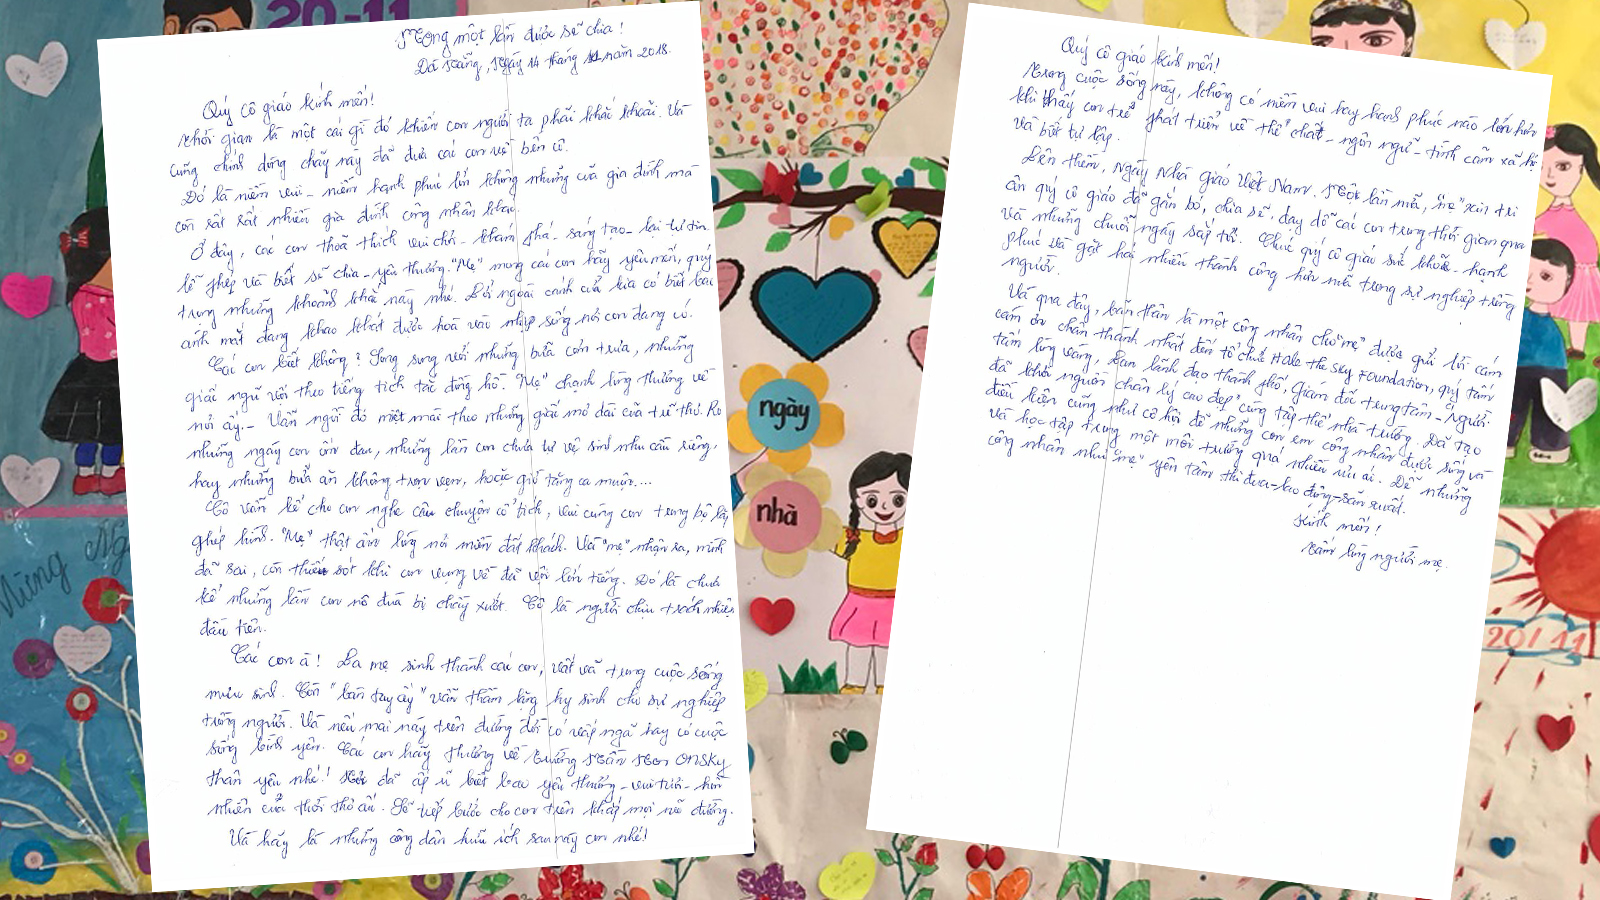 Mong một lần được sẽ chia!
Đà Nẵng, Ngày 14 tháng 11 năm 2018.
Quý cô giáo kính mến!
Thời gian là một cái gì đó khiến con người ta phải khắc khoải. Và
cũng chính dòng chảy này đã đưa các con về bên cô.
Đó là niềm vui - niềm hạnh phúc lớn không những của gia đình mà
còn rất rất nhiều gia đình công nhân khác.
Ở đây, các con thỏa thích vui chơi - khám phá - sáng tạo - lại tự tin
lễ phép và biết sẽ chia - yêu thương. "Mẹ" mong các con hãy yêu mến, quý
trọng những khoảnh khắc này nhé. Bởi ngoài cánh cửa kia có biết bao
ánh mắt đang khao khát được hoà vào nhịp sống nơi con đang có.
Các con biết không? Song song với những bữa cơm trưa, những
giấc ngủ vội theo tiếng tích tắc đồng hồ. "Mẹ" chạnh lòng thương về
nơi ấy. - Vẫn ngồi đó miệt mài theo những giấc mơ dài của trẻ thơ. Rồi
những ngày con ốm đau, những lần con chưa tự vệ sinh nhu cầu riêng,
hay những bữa ăn không trọn vẹn, hoặc giờ tăng ca muộn...
Cô vẫn kể cho con nghe câu chuyện cổ tích, vui cùng con trong bộ lắp
ghép hình. "Mẹ" thật ấm lòng nơi miền đất khách. Và "mẹ" nhận ra, mình
đã sai, còn thiếu sót khi con vụng về đã vội lớn tiếng. Đó là chưa
kể những lần con nô đùa bị chầy xướt. Cô là người chịu trách nhiệm
đầu tiên.
Các con à! Ba mẹ sinh thành các con, vất vả trong cuộc sống
mưu sinh. Còn "bàn tay ấy" vẫn thầm lặng hy sinh cho sự nghiệp
trồng người. Và nếu mai này trên đường đời có vấp ngã hay có cuộc
sống bình yên. Các con hãy thương về trường Mầm Non ONSKY
thân yêu nhé! Nơi đã ấp ủ biết bao yêu thương - vui tươi - hồn
nhiên của thời thơ ấu. Sẽ tiếp bước cho con trên khắp mọi nẻo đường.
Và hãy là những công dân hữu ích sau này con nhé!
Quý cô giáo kính mến!
Trong cuộc sống này, không có niềm vui hay hạnh phúc nào lớn hơn
khi thấy con trẻ phát triển về thể chất - ngôn ngữ - tình cảm xã hội
và biết tự lập.
Bên thềm, Ngày Nhà giáo Việt Nam. Một lần nữa, "mẹ" xin tri
ân quý cô giáo đã gắn bó, chia sẽ, dạy dỗ các con trong thời gian qua
và những chuỗi ngày sắp tới. Chúc quý cô giáo sức khoẻ - hạnh
phúc và gặt hái nhiều thành công hơn nữa trong sự nghiệp trồng
người.
Và qua đây, bản thân là một công nhân cho "mẹ" được gửi lời cám
cảm ơn chân thành nhất đến tổ chức Half the Sky Foundation, quý tấm
tấm lòng vàng, Ban lãnh đạo thành phố, Giám đốc trung tâm - "Người
đã khơi nguồn chân lý cao đẹp" cùng tập thể nhà trường. Đã tạo
điều kiện cũng như cơ hội để những con em công nhân được sống và
và học tập trong một môi trường quá nhiều ưu ái. Để những
công nhân như "mẹ" yên tâm thi đua - lao động - sản xuất.
Kính mến!
Tấm lòng người mẹ.
20-11
ngày
nhà
Mừng Ng
20/11